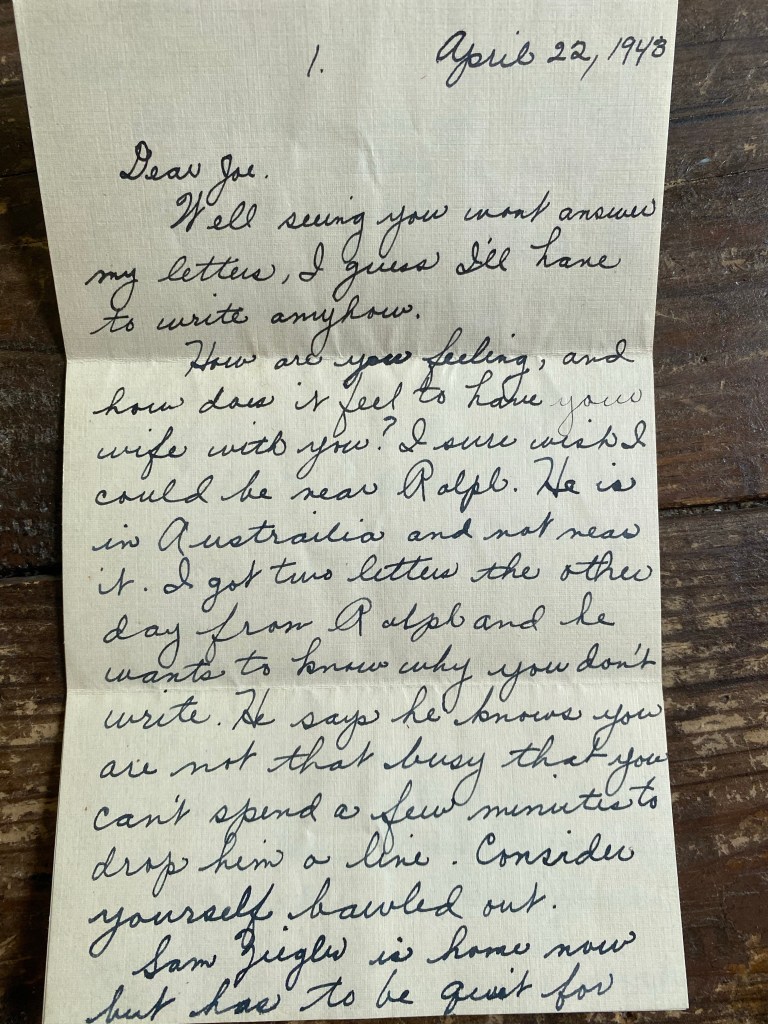 1. April 22, 1943
Dear Joe.
Well seeing you wont answer
my letters, I guess I'll have
to write anyhow.
How are you feeling, and
how does it feel to have your
wife with you? I sure wish I
could be near Ralph. He is
in Austrailia and not near
it. I got two letters the other
day from Ralph and he
wants to know why you don't
write. He says he knows you
are not that busy that you
can't spend a few minutes to
drop him a line. Consider
yourself bawled out.
Sam Ziegler is home now
but has to be quiet for